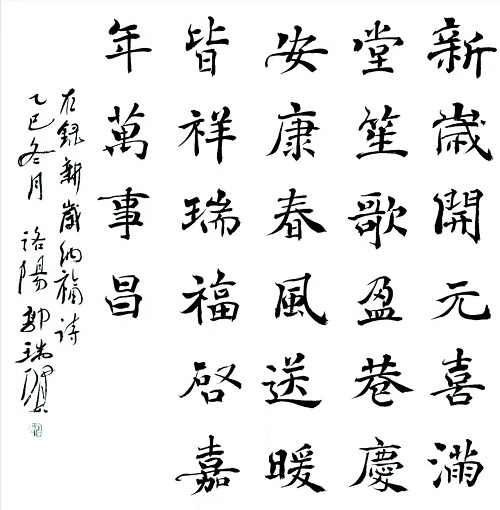 新歲開元喜滿
堂笙歌盈巷慶
安康春風送暖
皆祥瑞福啓嘉
年萬事昌
右錄新歲納福詩
乙巳冬月 洛陽郭瑞